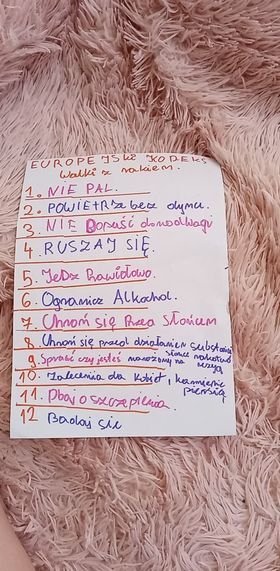 EUROPEJSKI KODEKS
Walki z rakiem.
1. NIE PAL.
2. POWIETRZE bez dymu.
3. NIE Dopuść do nadwagi
4. RUSZAJ SIĘ.
5. Jedz Prawidłowo.
6. Ogranicz Alkohol.
7. Chroń się Przed Słońcem
8. Chroń się przed działaniem substancji
9. Sprawdź czy jesteś narażony na
10. Zalecenia da kobiet, karmienie
piersią
11. Dbaj o szczepienia.
12 Badaj się